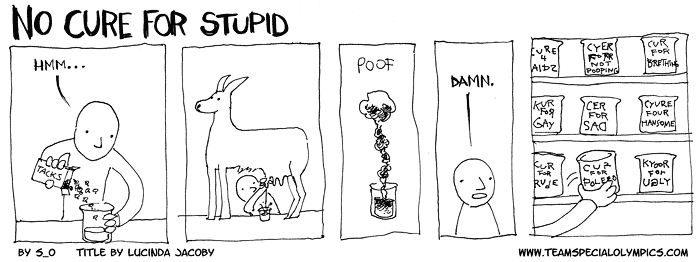 NO CURE FOR STUPID
HMM...
TACKS
POOF
DAMN.
CURE
4
AIDZ
CYER
FOR
NOT
POOPING
CUR
FOR
BRETHING
KUR
FOR
GAY
CER
FOR
SAD
CYURE
FOUR
HANSOME
CUR
FOR
RUDE
CUP
FOR
POLEEO
KYOOR
FOR
UGLY
BY S_O
TITLE BY LUCINDA JACOBY
WWW.TEAMSPECIALOLYMPICS.COM